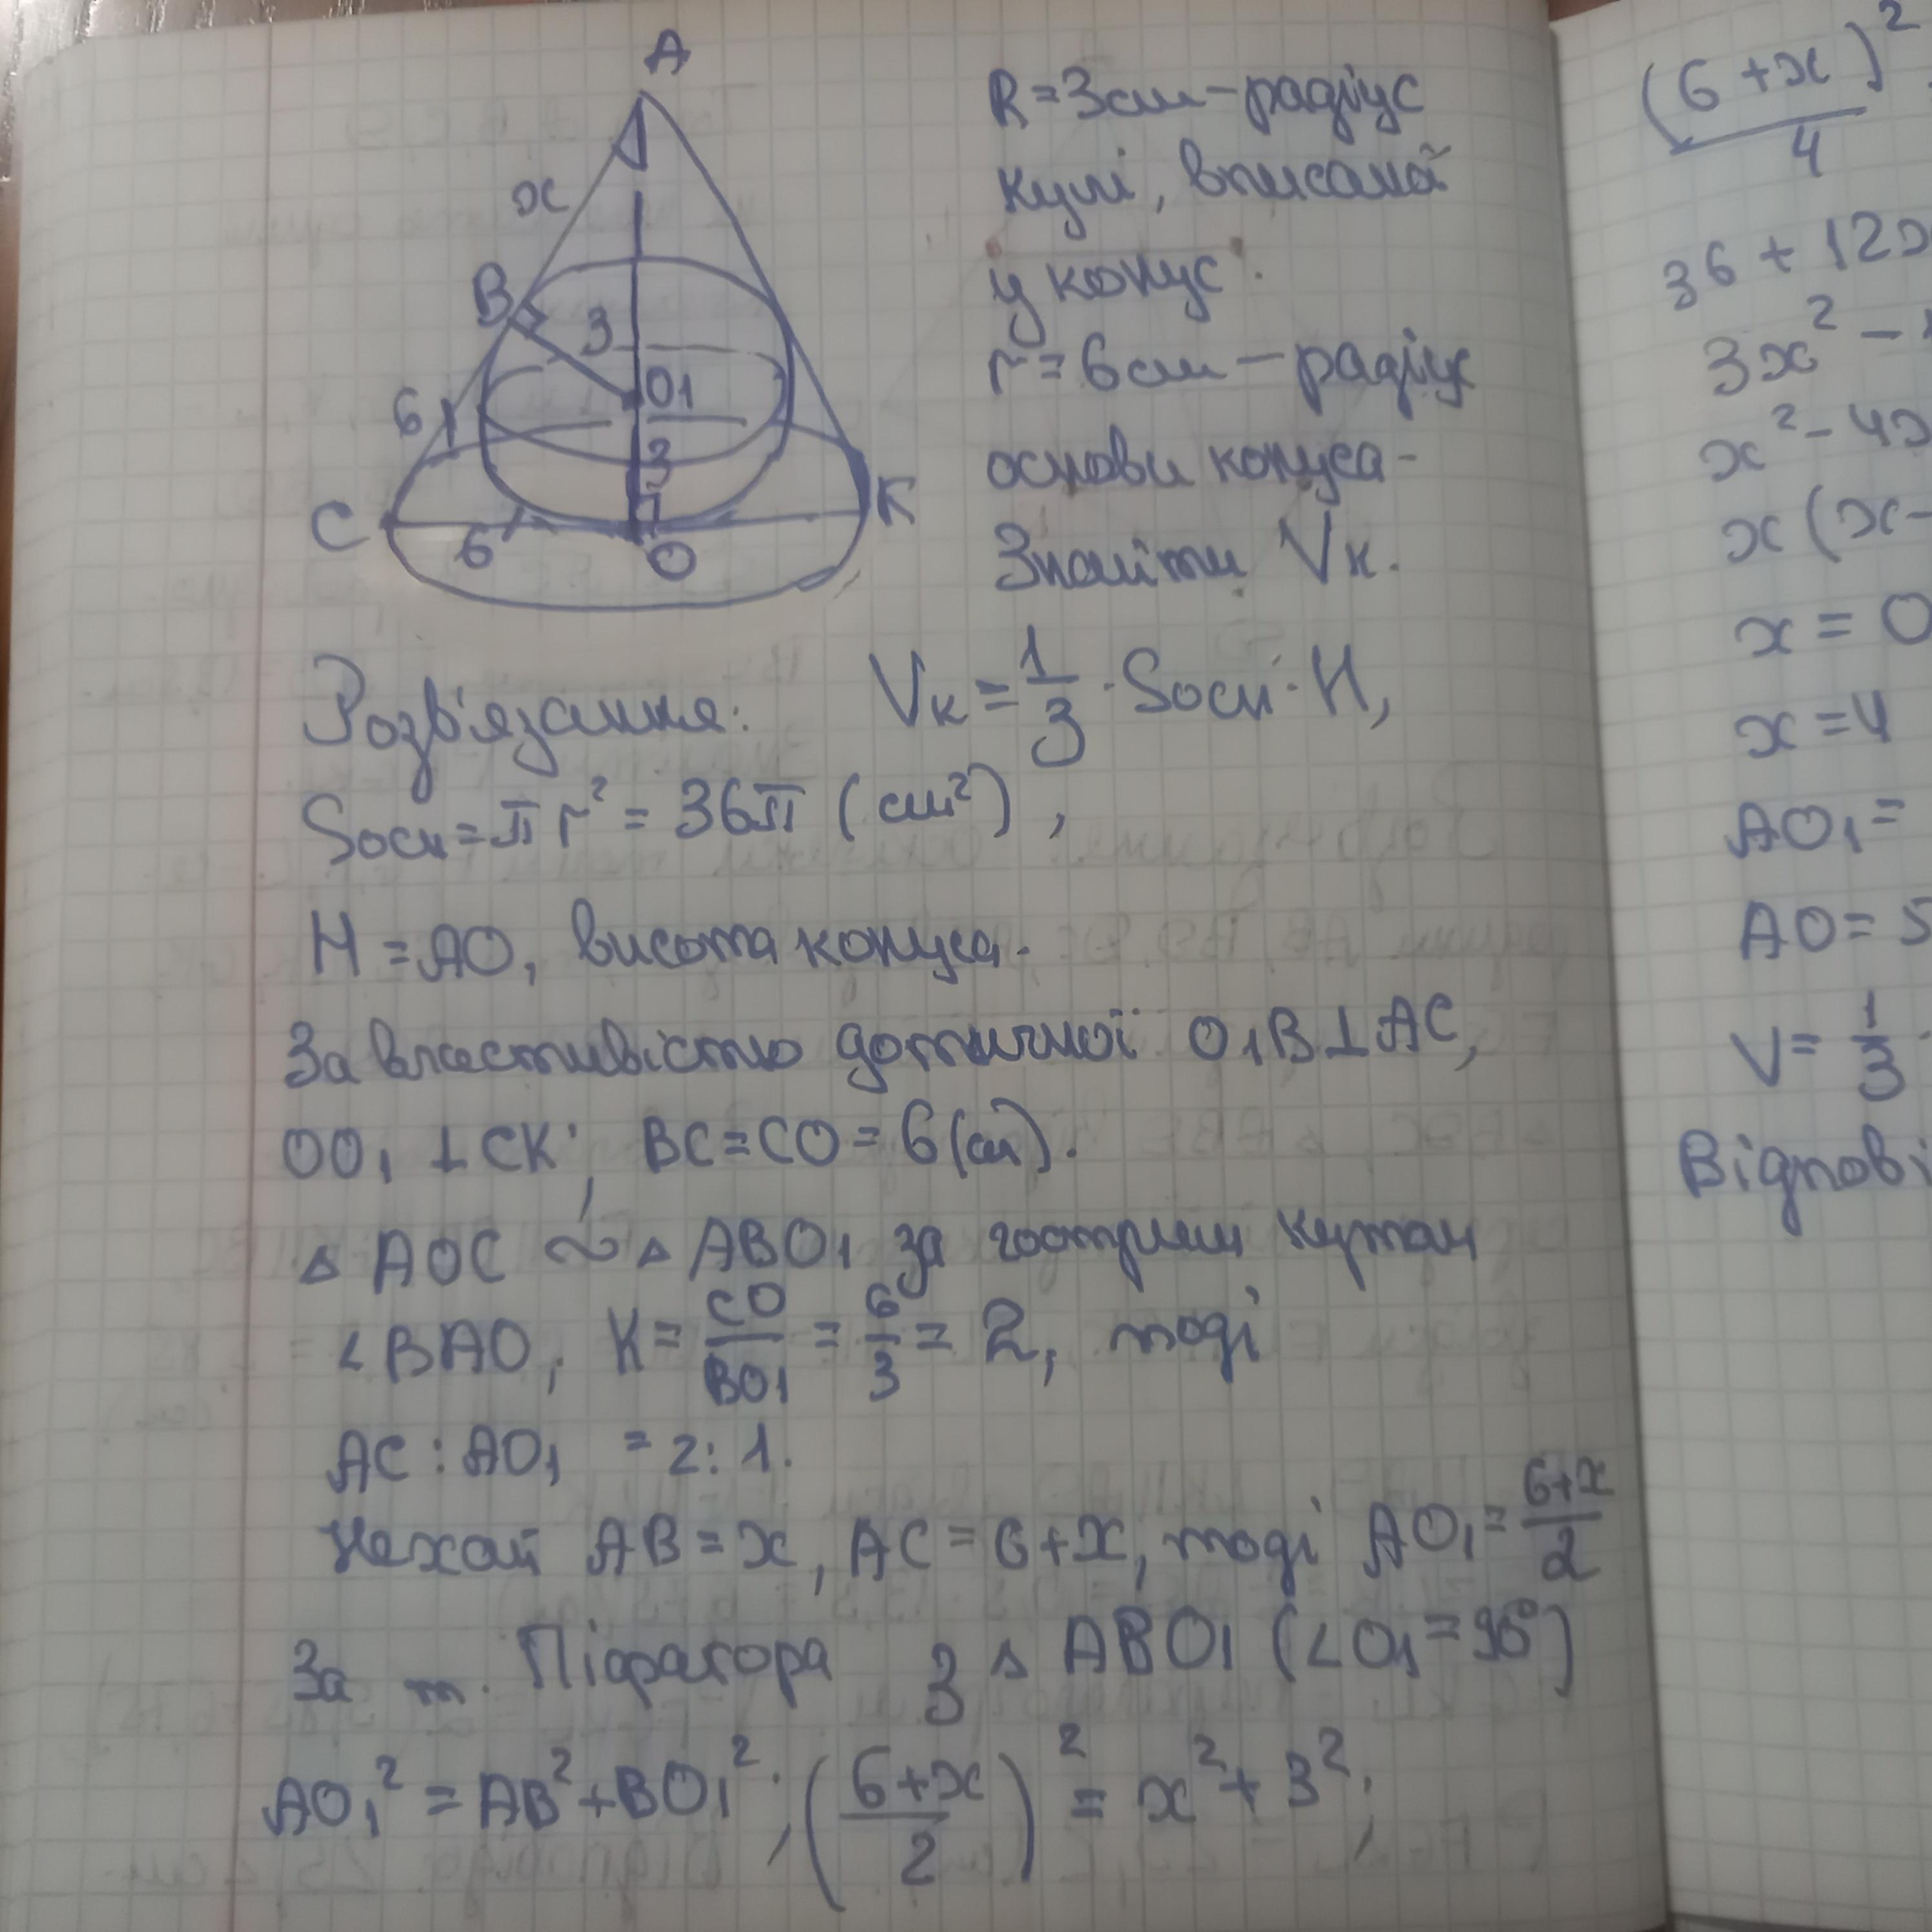 A
x
B
3
O1
6
3
C
K
6
O
R=3см – радіус
кулі, вписаної
у конус.
r=6см – радіус
основи конуса.
Знайти Vк.
Розв'язання: Vк = 1/3 · Sосн · H,
Sосн = πr² = 36π (см²),
H = AO, висота конуса.
За властивістю дотичної O1B⊥AC,
OO1 ⊥ CK; BC=CO=6(см).
△ AOC ~ △ ABO1 за гострим кутом
∠BAO, K = CO/BO1 = 6/3 = 2, тоді
AC : AO1 = 2:1.
Нехай AB = x, AC = 6+x, тоді AO1 = (6+x)/2
За т. Піфагора з △ ABO1 (∠O1=90°)
AO1² = AB² + BO1²; ((6+x)/2)² = x² + 3²;
(6+x)²/4
36 + 12x
3x² –
x² – 4x
x(x–
x = 0
x = 4
AO1 =
AO = 5
V = 1/3
Відпові